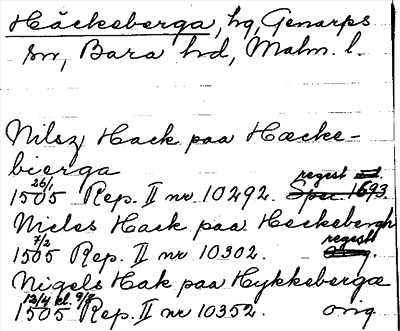 Häckeberga, hg, Genarps
sn, Bara hd, Malm. l.
Nilsz Hack paa Hæcke-
bierga
26/1 regist
1505 Rep. II nr 10292. Spec. 1693
Nicles Hack paa Heckebergh
7/2 regist
1505 Rep. II nr 10302.
Nigels Hak paa Hykkebergæ
12/4 el. 9/8
1505 Rep. II nr 10352 orig